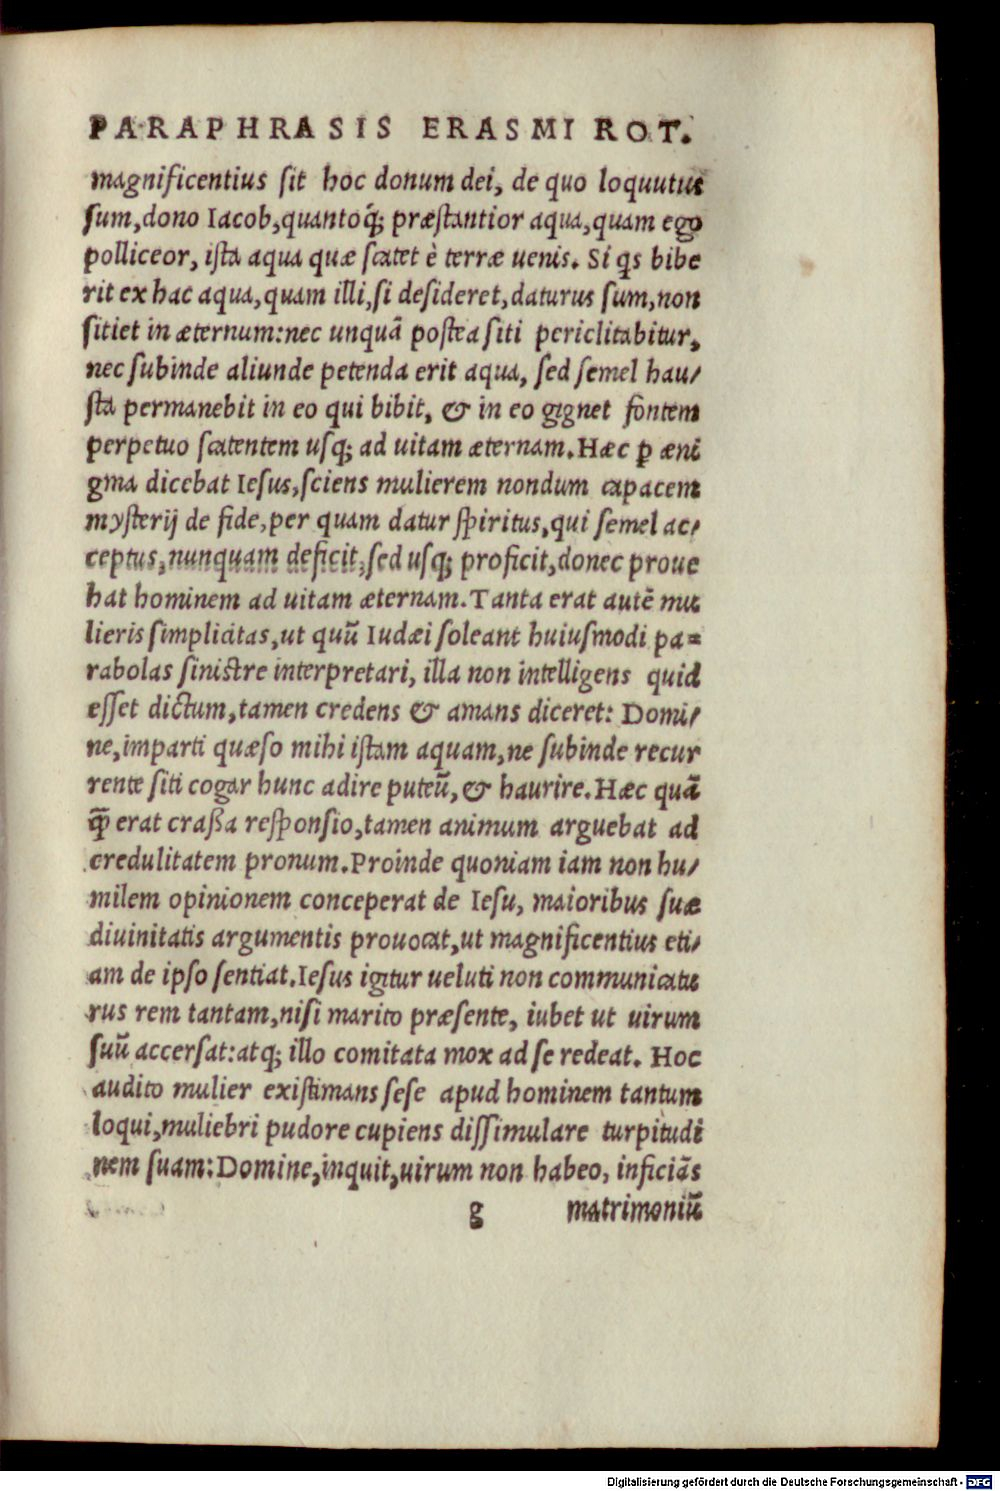 PARAPHRASIS ERASMI ROT.
magnificentius sit hoc donum dei, de quo loquutus
sum, dono Iacob, quantoq́; præstantior aqua, quam ego
polliceor, ista aqua quæ scatet è terræ uenis. Si qs bibe
rit ex hac aqua, quam illi, si desideret, daturus sum, non
sitiet in æternum: nec unquā postea siti periclitabitur,
nec subinde aliunde petenda erit aqua, sed semel hau/
sta permanebit in eo qui bibit, & in eo gignet fontem
perpetuo scatentem usq; ad uitam æternam. Hæc ꝑ æni
gma dicebat Iesus, sciens mulierem nondum capacem
mysterij de fide, per quam datur spiritus, qui semel ac/
ceptus, nunquam deficit, sed usq; proficit, donec proue
hat hominem ad uitam æternam. Tanta erat autē mu
lieris simplicitas, ut quū Iudæi soleant huiusmodi pa=
rabolas sinistre interpretari, illa non intelligens quid
esset dictum, tamen credens & amans diceret: Domi/
ne, imparti quæso mihi istam aquam, ne subinde recur
rente siti cogar hunc adire puteū, & haurire. Hæc quā
ꝙ̄ erat craßa responsio, tamen animum arguebat ad
credulitatem pronum. Proinde quoniam iam non hu/
milem opinionem conceperat de Iesu, maioribus suæ
diuinitatis argumentis prouocat, ut magnificentius eti/
am de ipso sentiat. Iesus igitur ueluti non communicatu
rus rem tantam, nisi marito præsente, iubet ut uirum
suū accersat: atq; illo comitata mox ad se redeat. Hoc
audito mulier existimans sese apud hominem tantum
loqui, muliebri pudore cupiens dissimulare turpitudi
nem suam: Domine, inquit, uirum non habeo, inficiās
g matrimoniū
Digitalisierung gefördert durch die Deutsche Forschungsgemeinschaft - DFG